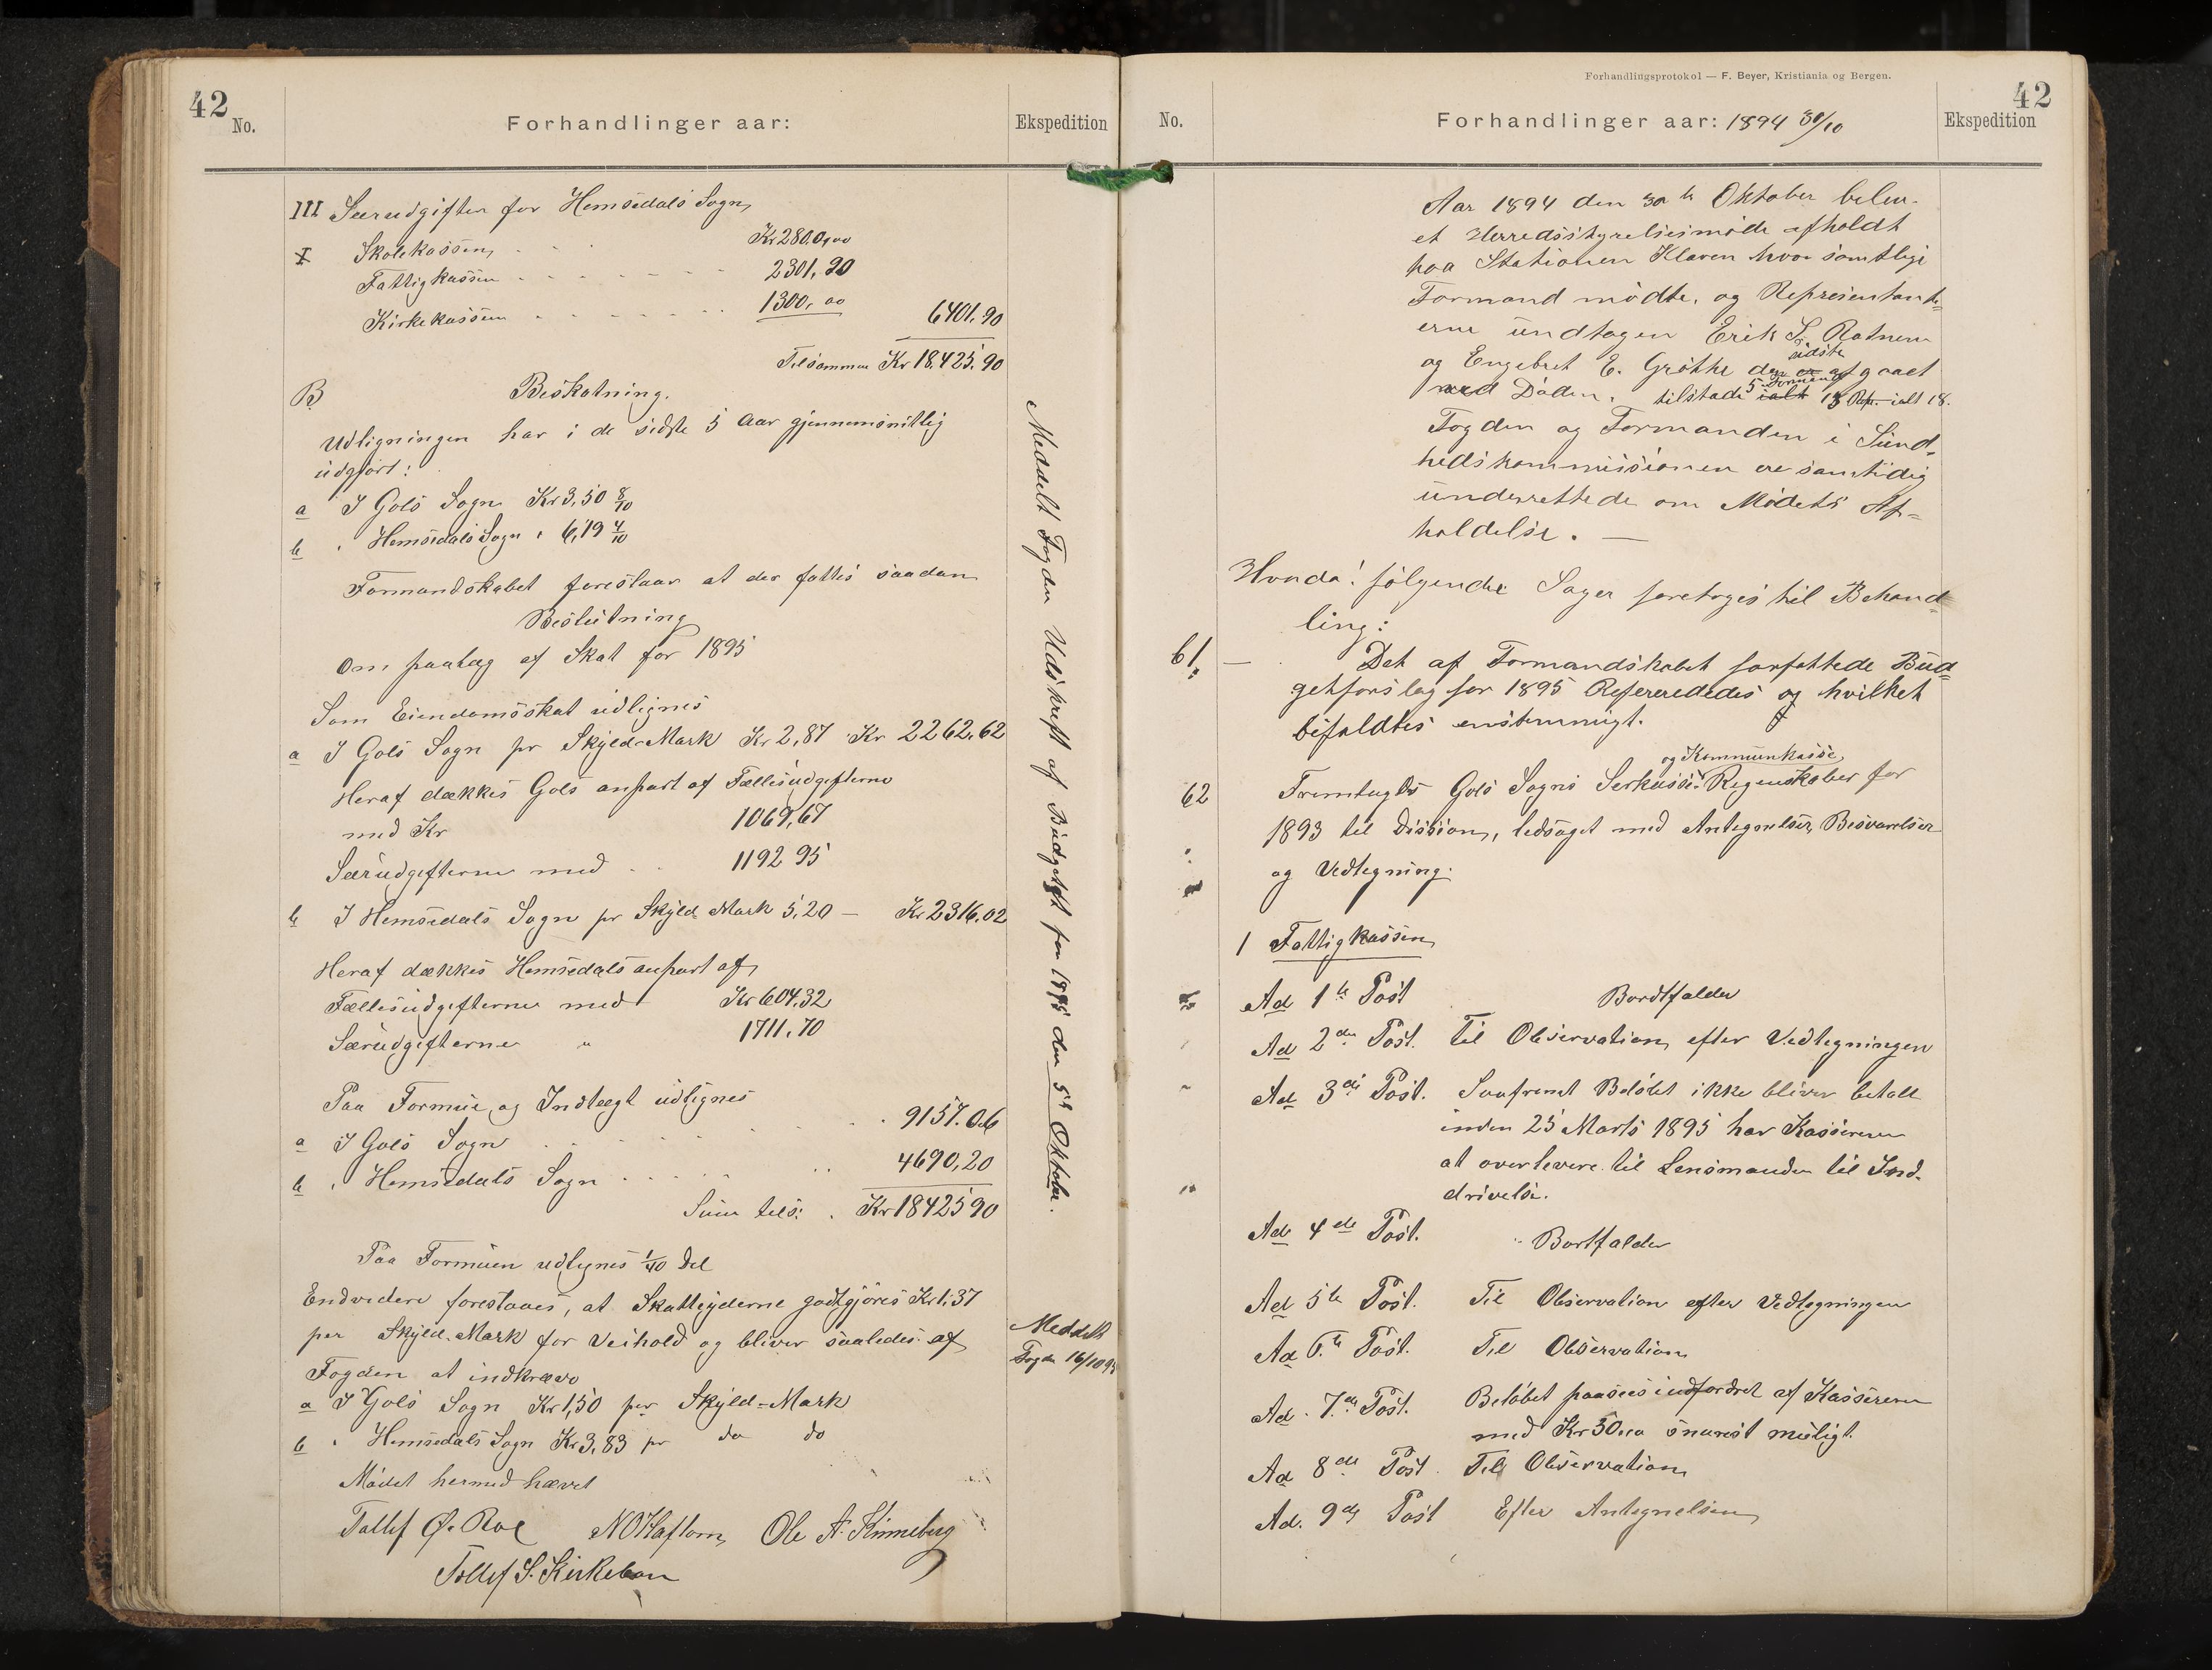 42
No.
Forhandlinger aar:
Ekspedition
III Særudgifter for Hemsedals Sogn
Skolekassen Kr 2800,00
Fattigkassen 2301,90
Kirkekassen 1300,00 6401.90
Tilsammen Kr 18.425.90
B Beskatning.
Udligningen har i de sidste 5 Aar gjennemsnitlig
udgjort:
a I Gols Sogn Kr 3,50 8/10
b " Hemsedals Sogn " 6,19 4/10
Formandskabet foreslaar at der fattes saadan
Beslutning
om paalæg af Skat for 1895
Som Eiendomsskat udlignes
a I Gols Sogn pr Skyld-Mark Kr 2,87 Kr 2262.62
Heraf dækkes Gols anpart af Fællesudgifterne
med Kr 1069,67
Særudgifterne med 1192 95
b I Hemsedals Sogn pr Skyld Mark 5,20 — Kr 2316.02
Heraf dækkes Hemsedals anpart af
Fællesudgifterne med Kr 604.32
Særudgifterne " 1711.70
Paa Formue og Indtægt udlignes
a I Gols Sogn 9157.06
b " Hemsedals Sogn 4690,20
Sum tils: Kr 18425 90
Paa Formuen udlignes 1/40 Del
Endvidere foreslaaes, at Skatteyderne godtgjøres Kr 1.37
per Skyld-Mark for Veihold og bliver saaledes af
Fogden at indkræve
a I Gols Sogn Kr 1,50 per Skyld-Mark
b " Hemsedals Sogn Kr 3,83 pr do do
Mødet hermed hævet
Tollef Ø. Roe N O Haftorn Ole A. Kinneberg
Tollef S. Kirkebøn
Meddelt Fogden Udskrift af Budgettet for 1895 den 5te Oktober.
Meddelt
Fogden 16/10 94
Forhandlingsprotokol — F. Beyer, Kristiania og Bergen.
42
No.
Forhandlinger aar: 1894 30/10
Ekspedition
Aar 1894 den 30te Oktober blev
et Herredsstyrelsesmøde afholdt
paa Stationen Klaven hvor samtlige
Formænd mødte, og Repræsentant-
erne undtagen Erik S. Rotneim
og Engebret E. Grøthe der sidste er afgaaet
ved Døden. tilstede ialt 5 Formænd 13 Rep. ialt 18.
Fogden og Formanden i Sund-
hedskommissionen ere samtidig
underrettede om Mødets Af-
holdelse. —
Hvorda! følgende Sager foretoges til Behand-
ling:
61. — Det af Formandskabet forfattede Bud-
getforslag for 1895 Refereredes og hvilket
bifaldtes enstemmigt.
62 Fremlagdes Gols Sogns Serkasse og Kommunkasse Regnskaber for
1893 til Dission, ledsaget med Antegnelser, Besvarelser
og Vedtegning.
1 Fattigkassen
Ad 1te Post Bordtfalder
Ad 2den Post. Til Observation efter Vedtegningen
Ad 3die Post. Saafremt Beløbet ikke bliver betalt
inden 25 Marts 1895 har Kassereren
at overlevere til Lensmanden til Ind-
drivelse.
Ad 4de Post. Bortfalder
Ad 5te Post. Til Observation efter Vedtegningen
Ad 6te Post. Til Observation
Ad. 7de Post. Beløbet paasees indfordret af Kassereren
med Kr 50,00 snarest muligt.
Ad 8de Post. Til Observation
Ad. 9de Post Efter Antegnelsen